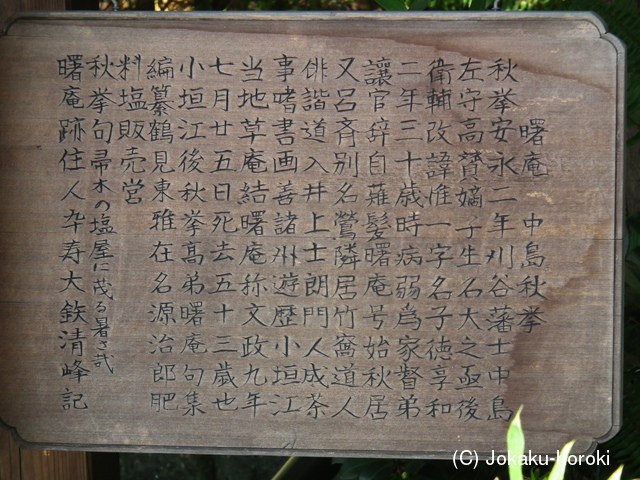 曙庵 中島秋挙
秋挙安永二年刈谷藩士中島
左守高賛嫡子生名大之亟後
衛輔改諱惟一字名子徳享和
二年三十歳時病弱為家督弟
譲官辞自薙髪曙庵号始秋居
又呂斉別名鶯隣居竹窩道人
俳諧道入井上士朗門人成茶
事嗜書画善諸州遊歴小垣江
当地草庵結曙庵称文政九年
七月廿五日死去五十三歳也
小垣江後秋挙高弟曙庵句集
編纂鶴見東雅在名源治郎肥
料塩販売営
秋挙句帚木の塩屋に茂る暑さ哉
曙庵跡住人卒寿大鉄清峰記
(C) Jokaku-horoki